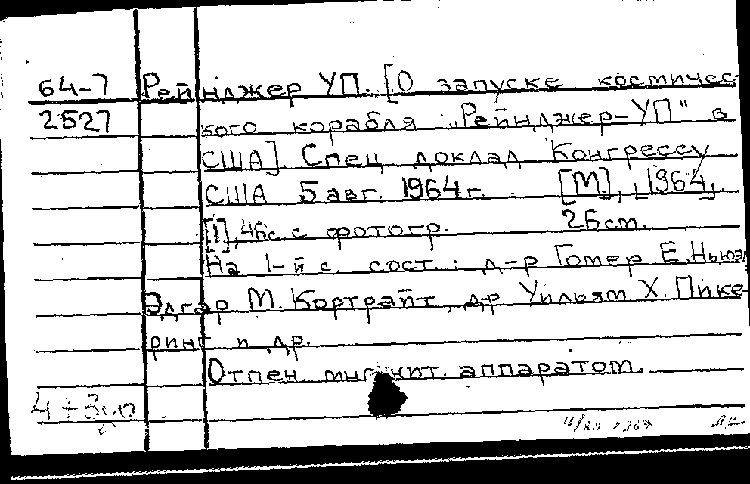 64-7 Рейнджер УП. [О запуске космичес-
2527 кого корабля „Рейнджер-УП" в
США]. Спец. доклад Конгрессу
США 5 авг. 1964 г. [М], 1964,
[1], 46 с. с фотогр. 26 см.
На 1-й с. сост.: д-р Гомер Е. Ньюэл
Эдгар М. Кортрайт, д-р Уильям Х. Пике-
ринг и др.
Отпеч. аппаратом.